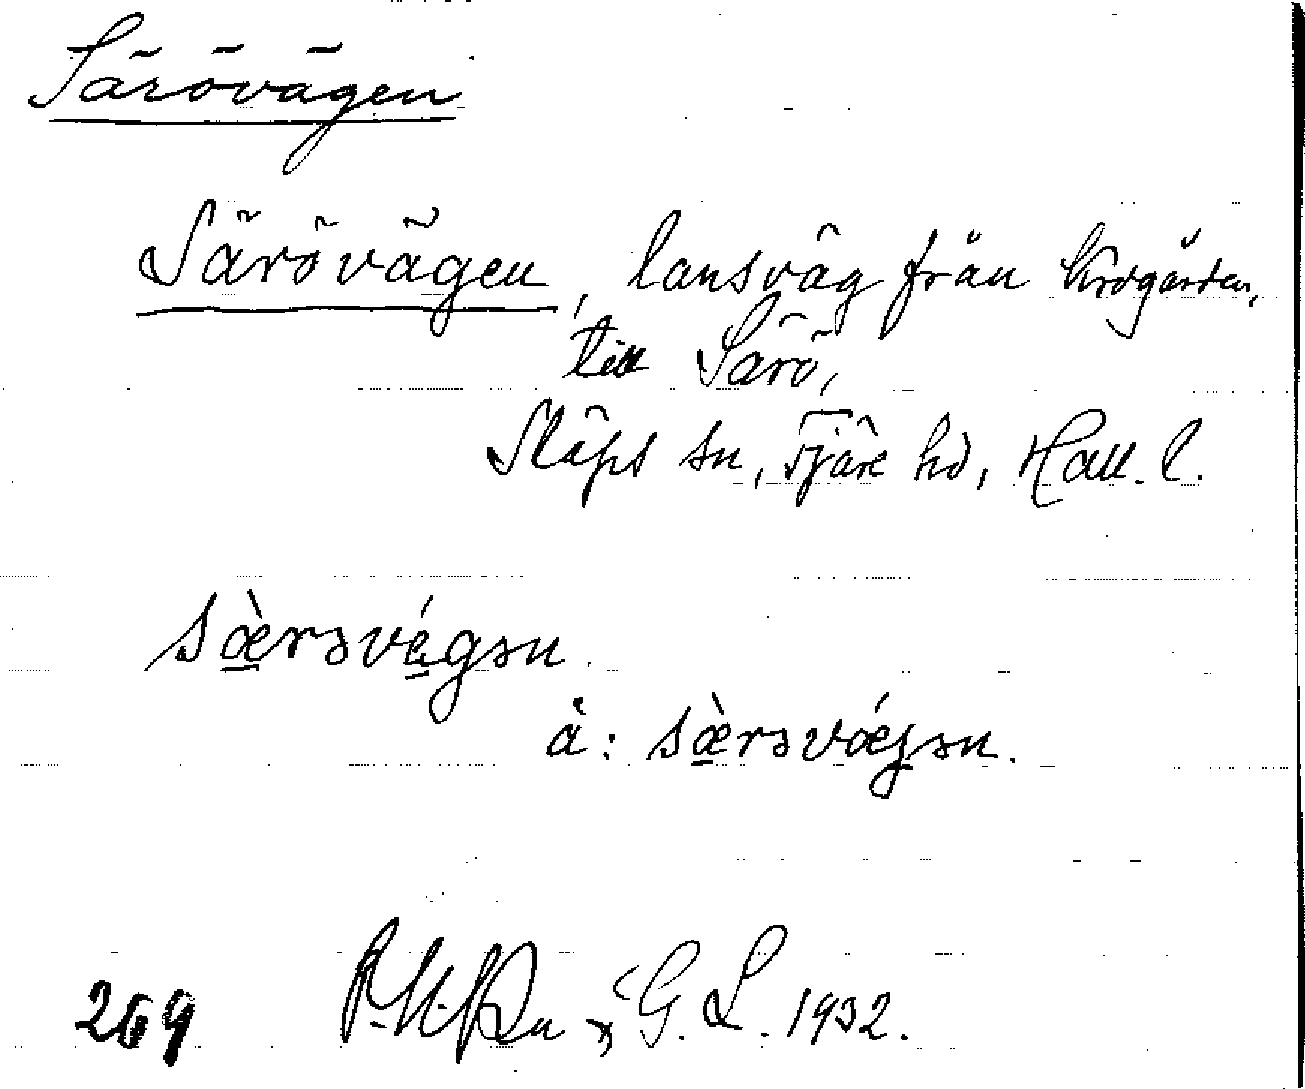 Särövägen
Särövägen, lansväg från Krogården,
till Särö,
Släps sn, Fjäre hd, Hall. l.
sæ̀rəvégən
å: sæ̀rəvǽgən.
269 G. L. 1932.